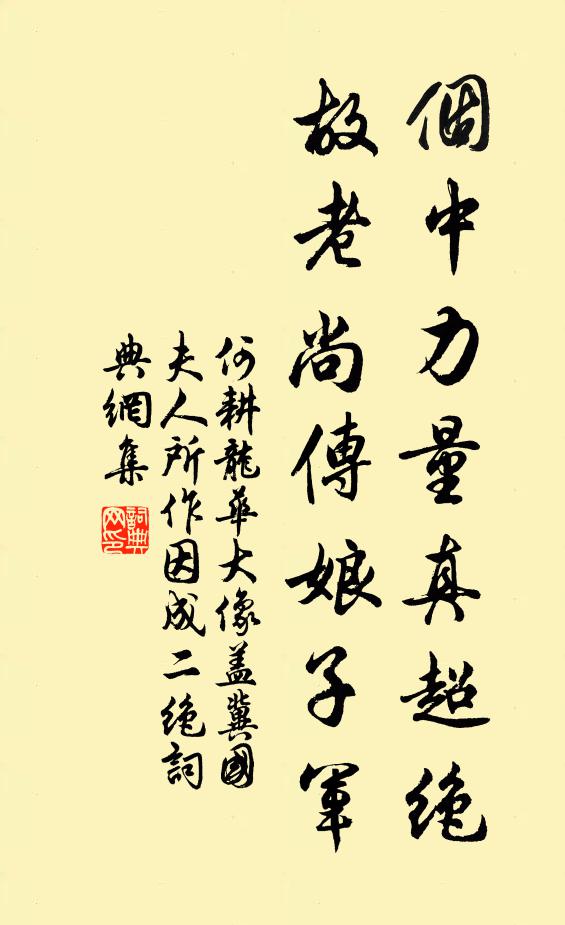 個中力量真超絶
故老尚傳娘子軍
何耕龍華大像蓋冀國
夫人所作因成二絶詞
典網集
詞典
网印